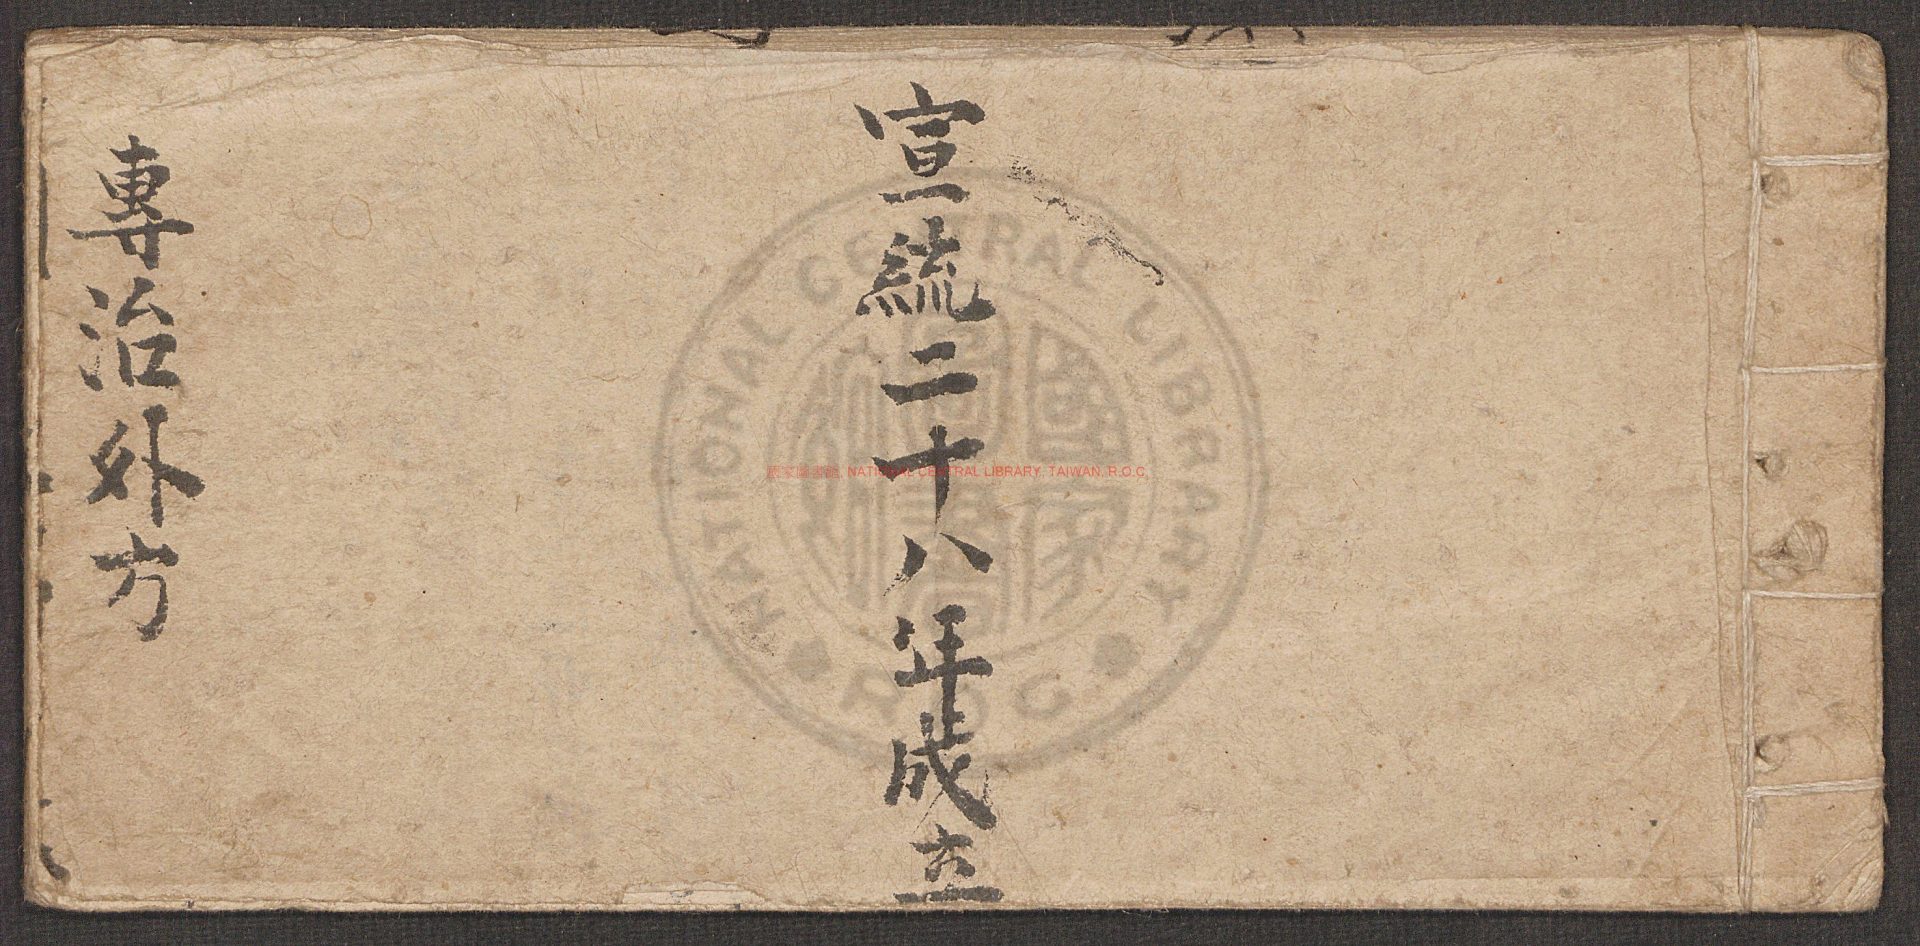 宣統二十八年成立
專治外方
NATIONAL CENTRAL LIBRARY
R.O.C
國家圖書館, NATIONAL CENTRAL LIBRARY, TAIWAN, R.O.C,